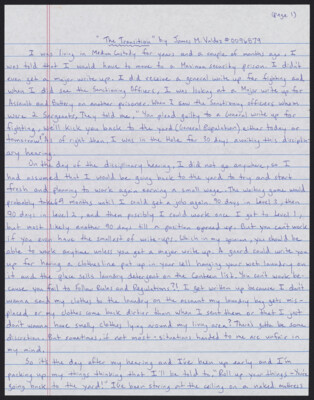 (Page 1)
"The Transition" by James M. Valdez #0096579
I was living in Medium Custody for years and a couple of months ago, I
was told that I would have to move to a Maximum security prison. I didn't
even get a major write up. I did receive a general write up for fighting and
when I did see the Sanctioning Officers, I was looking at a Major write up for
Assault and Battery on another prisoner. When I saw the Sanctioning officers whom
were 2 Sergeants, they told me, "You plead guilty to a General write up for
fighting, we'll kick you back to the yard (General Population) either today or
tomorrow." All of right then, I was in the Hole for 10 days awaiting this disciplin-
ary hearing.
On the day of the disciplinary hearing, I did not go anywhere, so I
had assumed that I would be going back to the yard to try and start
fresh and planning to work again earning a small wage. The waiting game would
probably take 9 months until I could get a job again. 90 days in level 3, then
90 days in level 2, and then possibly I could work once I got to level 1,
but most likely another 90 days till a position opened up. But you can't work
if you even have the smallest of write-ups, which in my opinion, you should be
able to work anytime unless you get a major write up. A guard could write you
up for having a clothes line put up in your cell, hanging your wet laundry on
it and the place sells laundry detergent on the Canteen list. You can't work be-
cause you fail to follow Rules and Regulations?! I got written up because I don't
wanna send my clothes to the laundry on the account my laundry bag gets mis-
placed or my clothes come back dirtier than when I sent them or that I just
don't wanna have smelly clothes lying around my living area? There's gotta be some
discretion. But sometimes, if not most situations handed to me are unfair in
my mind.
So it's the day after my hearing and I've been up early and I'm
packing up my things thinking that I'll be told to, "Roll up your things - You're
going back to the yard!" I've been staring at the ceiling on a naked mattress